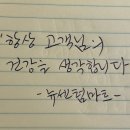 항상 고객님의
건강을 생각합니다
-뉴센텀마트-